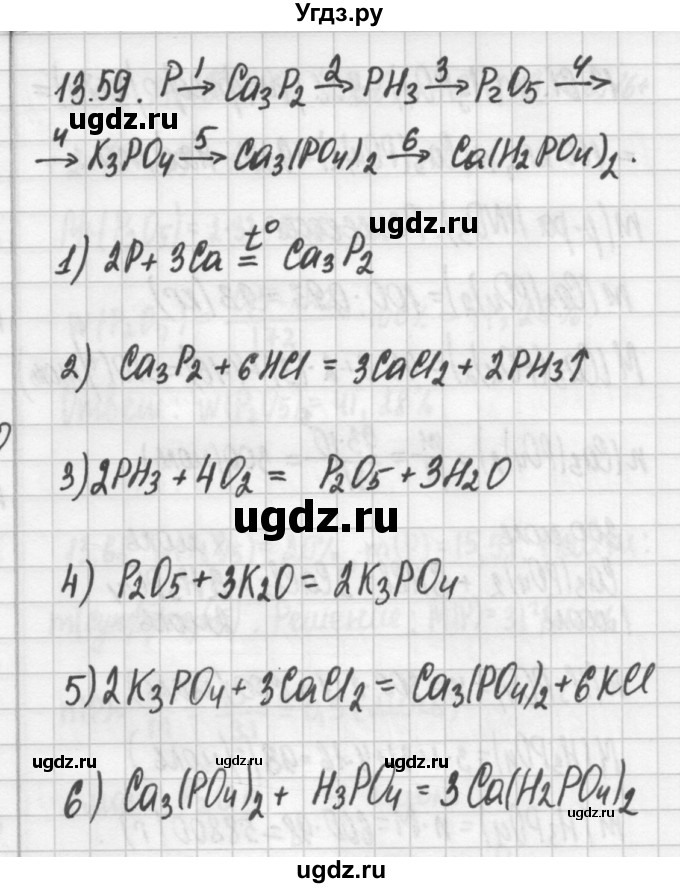 Угдз.ру
13.59. P 1→ Ca₃P₂ 2→ PH₃ 3→ P₂O₅ 4→
ugdz.ru
4→ K₃PO₄ 5→ Ca₃(PO₄)₂ 6→ Ca(H₂PO₄)₂.
ugdz.ru
1) 2P + 3Ca t°= Ca₃P₂
2) Ca₃P₂ + 6HCl = 3CaCl₂ + 2PH₃↑
3) 2PH₃ + 4O₂ = P₂O₅ + 3H₂O
ugdz.ru
4) P₂O₅ + 3K₂O = 2K₃PO₄
5) 2K₃PO₄ + 3CaCl₂ = Ca₃(PO₄)₂ + 6KCl
ugdz.ru ugdz.ru ugdz.ru
6) Ca₃(PO₄)₂ + H₃PO₄ = 3Ca(H₂PO₄)₂
ugdz.ru
ugdz.ru